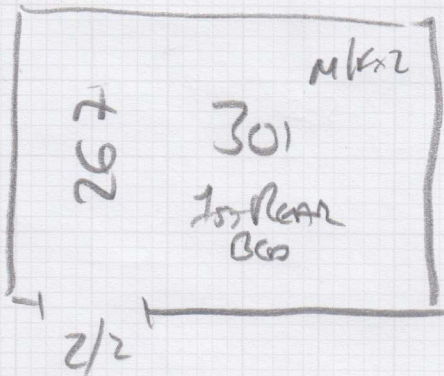 M/K×2
267
301
1st REAR
BED
2/2